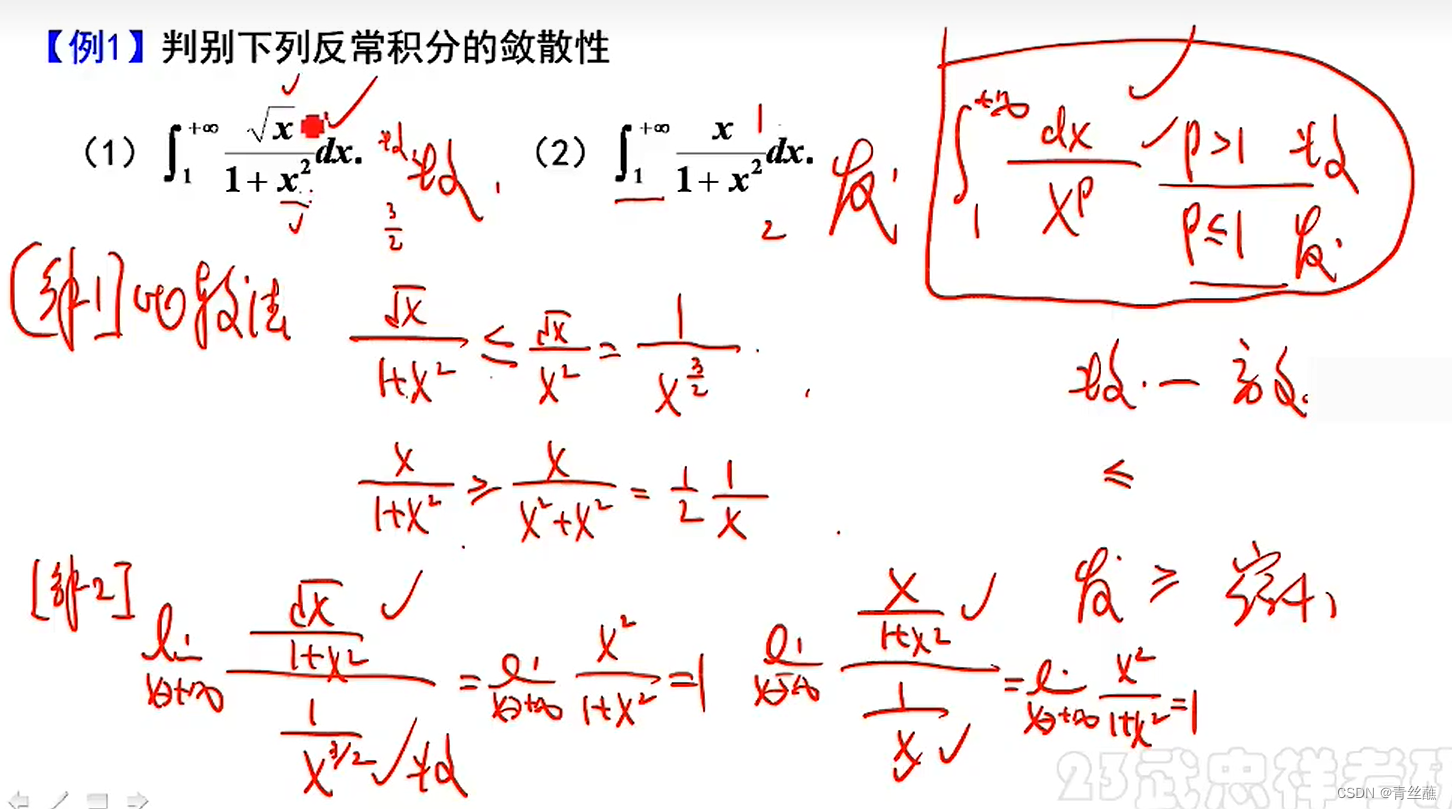 【例1】判别下列反常积分的敛散性
（1）∫₁^{+∞} √x/(1+x²) dx. 收 3/2
（2）∫₁^{+∞} x/(1+x²) dx. 1 2 发.
∫₁^{+∞} dx/x^p p>1 收
p≤1 发.
[解1] 比较法 √x/(1+x²) ≤ √x/x² = 1/x^{3/2}.
≤
x/(1+x²) ≥ x/(x²+x²) = 1/2 1/x
发 ≥
[解2] lim_{x→+∞} (√x/(1+x²))/(1/x^{3/2}) = lim_{x→+∞} x²/(1+x²) = 1
收
lim_{x→+∞} (x/(1+x²))/(1/x) = lim_{x→+∞} x²/(1+x²) = 1
23武忠祥考研
CSDN @青丝蘸